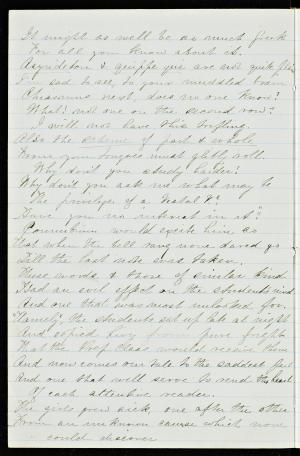 It might as well be as much junk
For all you know about it.
Asyndeton & quippe qui are not quite plain
I'm sad to see, to your muddled brain
Chrasmus next, does no one know?
What! not one on the second row?
I will not have this trifling.
Also the scheme of part & whole
From your tongues must glibly roll.
Why don't you study harder?
Why don't you ask me what may be
The privilege of a Vestal V?
Have you no interest in it"?
Connubium would excite him so
That when the bell rang none dared go
Till the last note was taken.
These words & those of similar kind
Had an evil effect on the students' mind
And one that was most unlooked for.
Namely, the students sat up late at night
And copied hay from pure fright
That the Prof Class would receive them
And now comes our tale to the saddest part
And one that will serve to rend the heart
Of each attentive reader.
The girls grew sick, one after the other
From an unknown cause which none
could discover